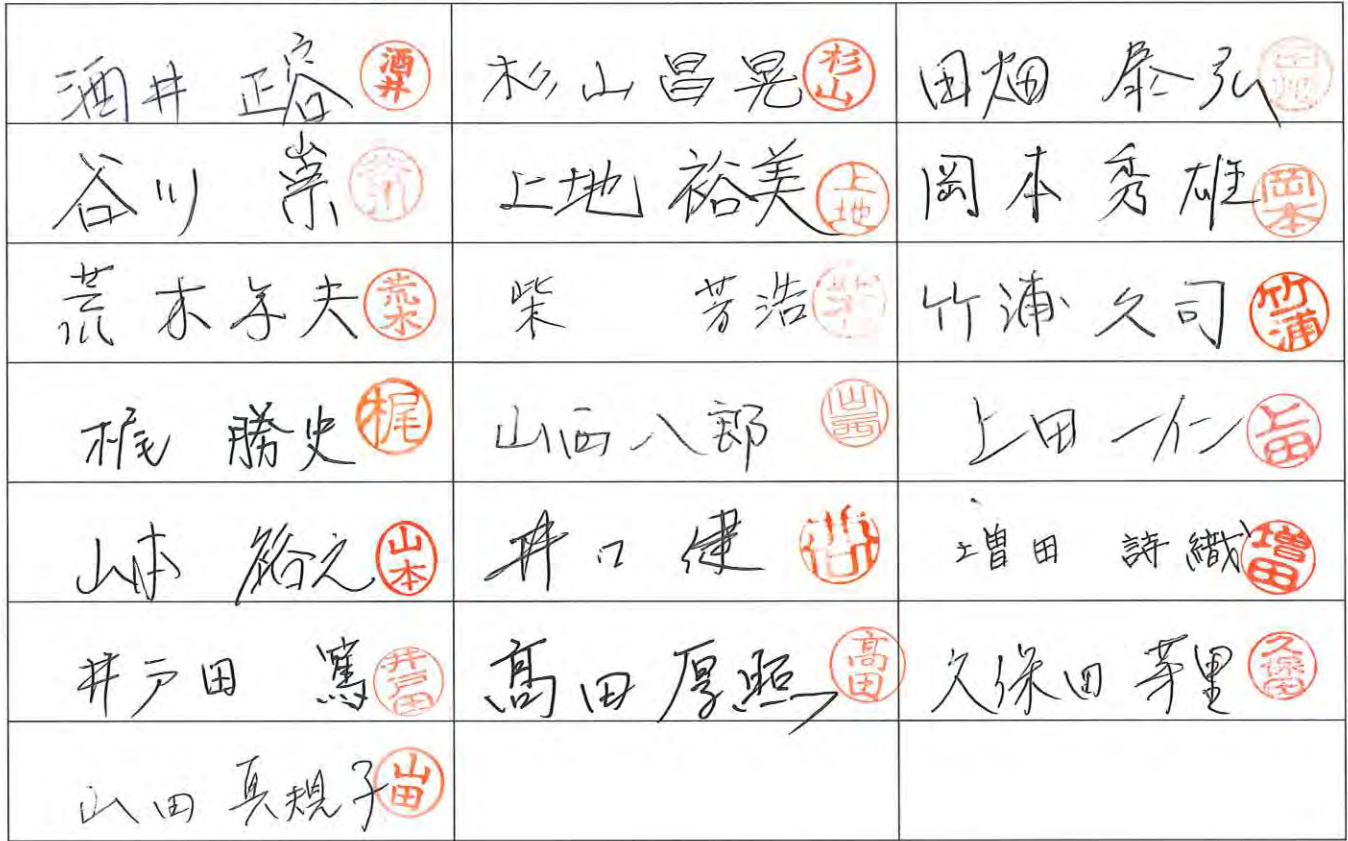 酒井 正容 酒井 杉山昌晃 杉山 田畑 泰弘 田畑
谷川 崇 谷川 上地 裕美 上地 岡本 秀雄 岡本
荒木孝夫 荒木 柴 芳浩 竹浦 久司 竹浦
梶 勝史 梶 山西八郎 山西 上田一仁 上田
山本 裕之 山本 井口 健 増田 詩織 増田
井戸田 篤 井戸田 髙田 厚照 高田 久保田 芽里 久保田
山田 真規子 山田